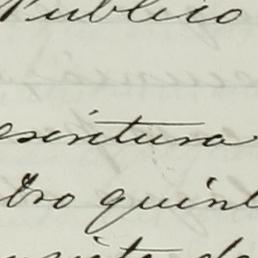 Publico
escritura
tro quint